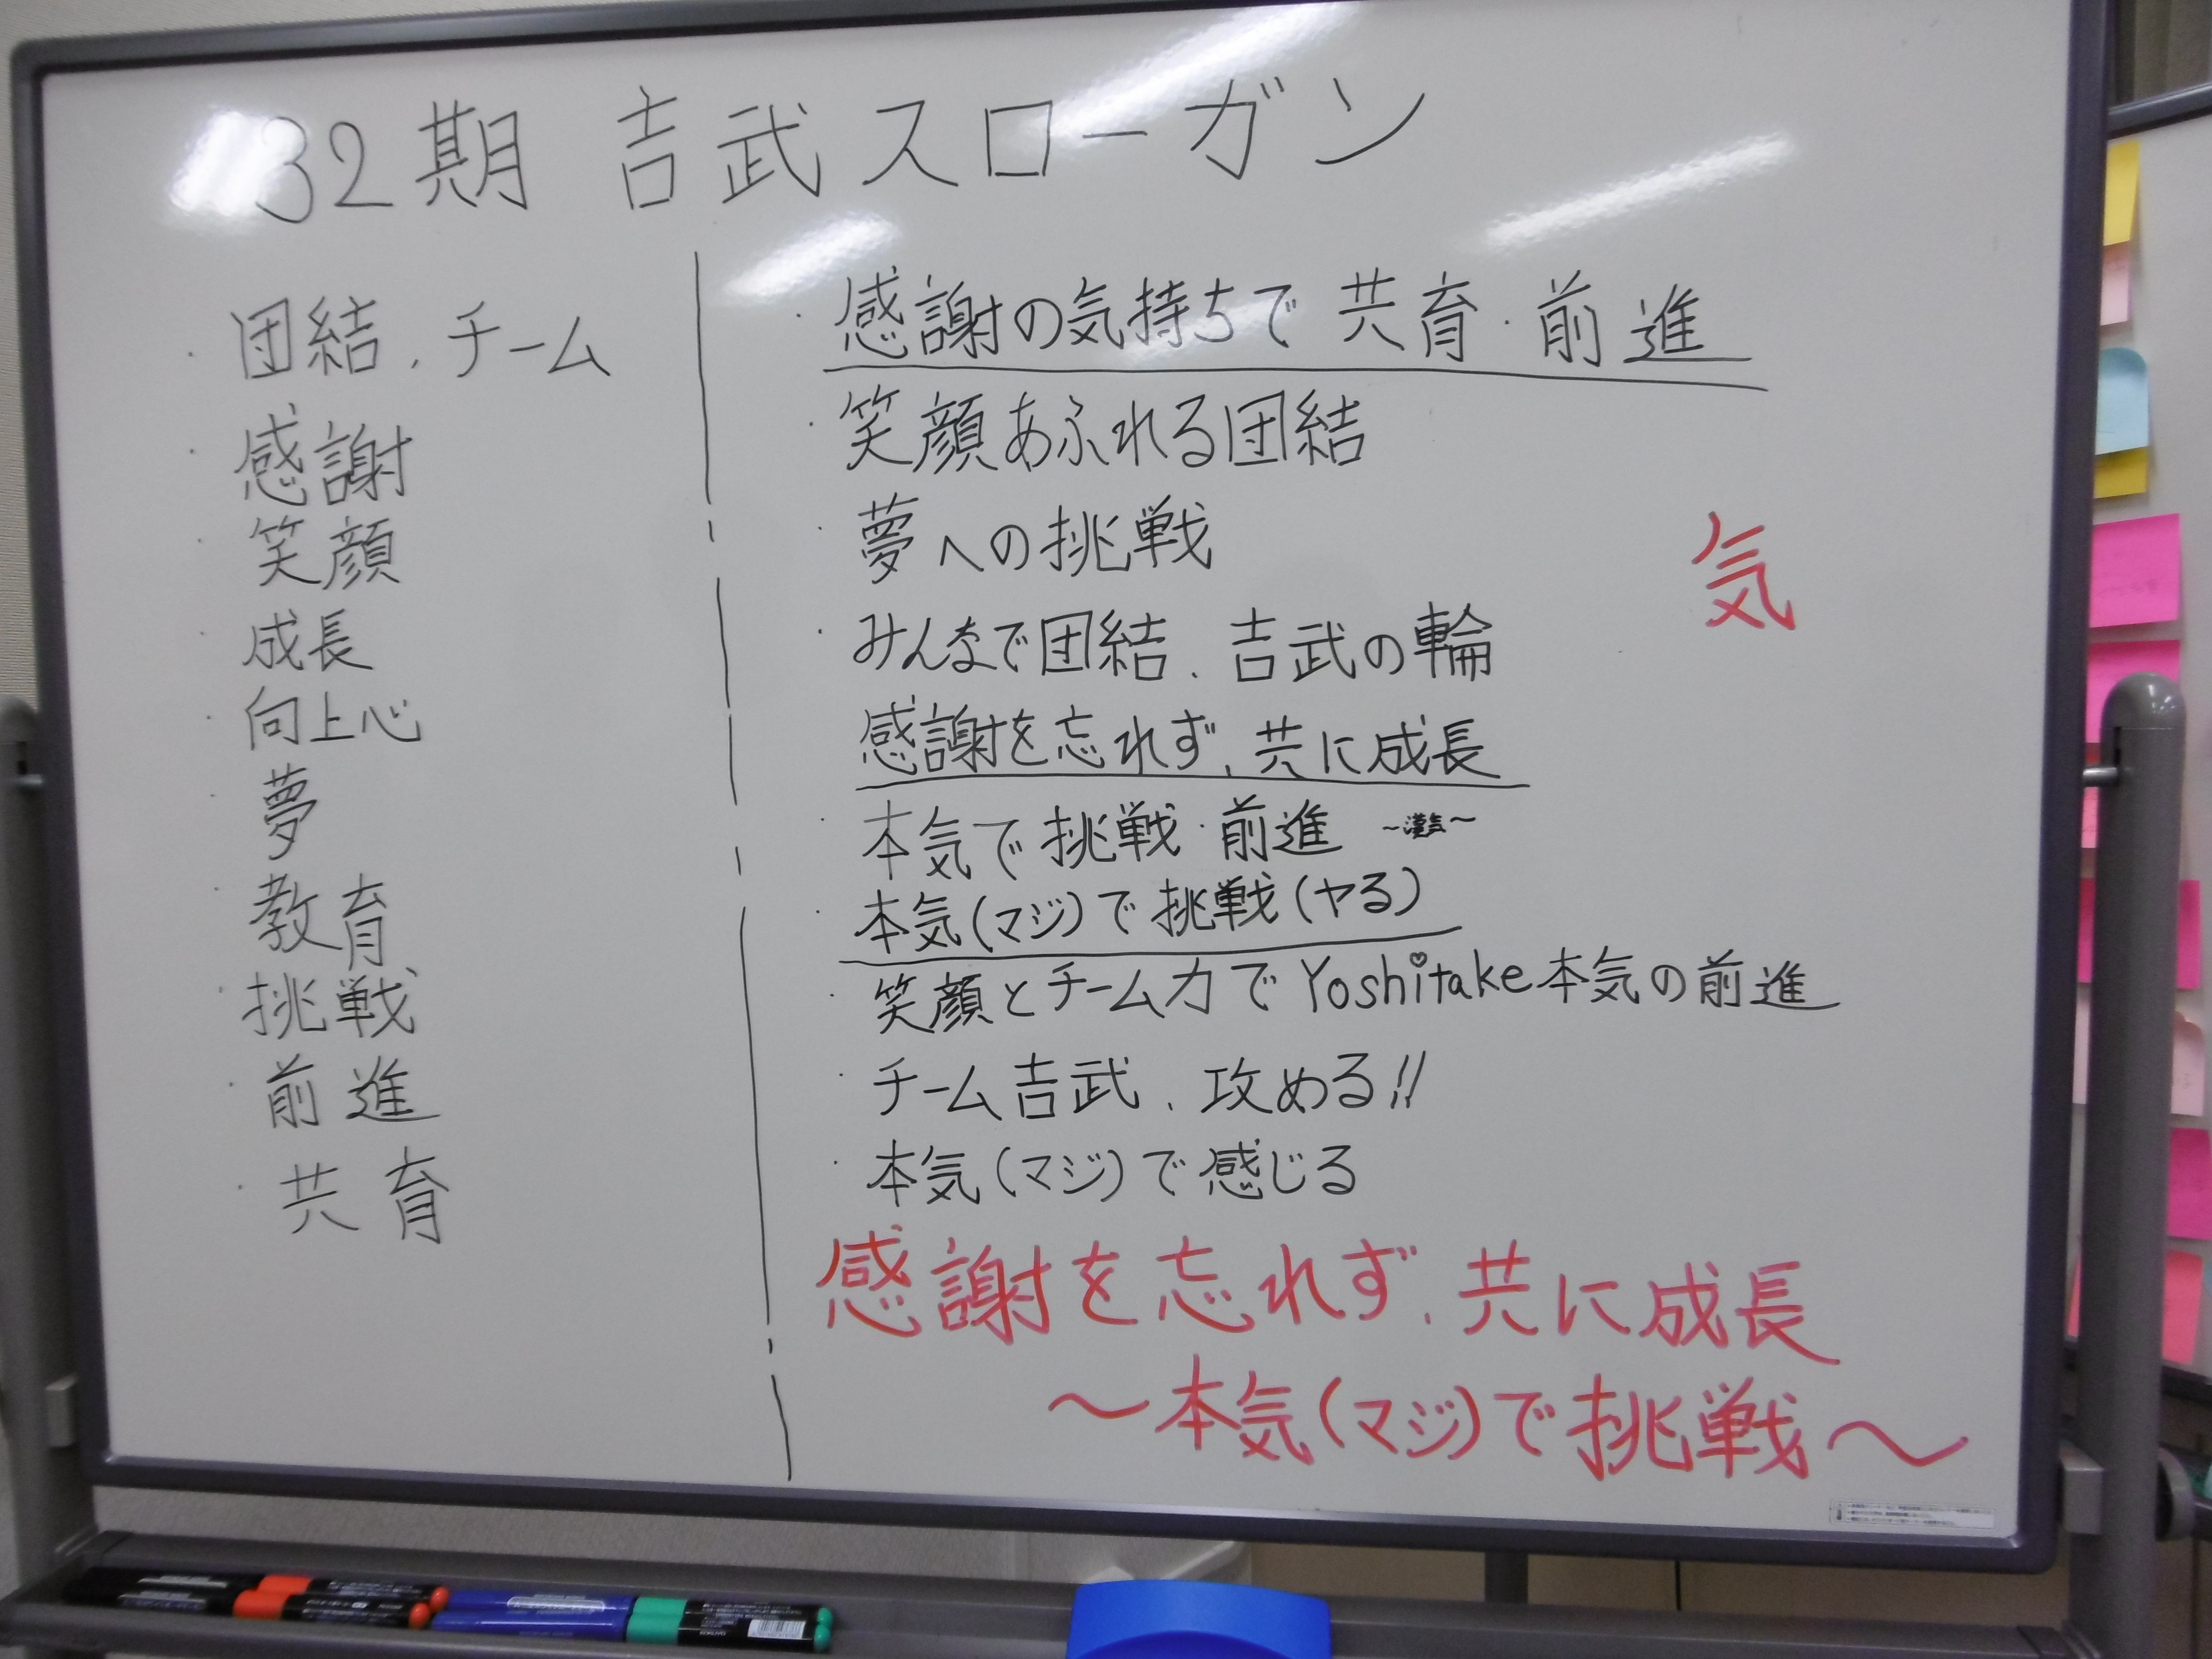 32期 吉武スローガン
・団結、チーム
・感謝
・笑顔
・成長
・向上心
・夢
・教育
・挑戦
・前進
・共育
・感謝の気持ちで共育・前進
・笑顔あふれる団結
・夢への挑戦
・みんなで団結、吉武の輪
感謝を忘れず、共に成長
・本気で挑戦・前進
・本気(マジ)で挑戦(ヤる)
・笑顔とチーム力でYoshitake本気の前進
・チーム吉武、攻める!!
・本気(マジ)で感じる
気
感謝を忘れず、共に成長
〜本気(マジ)で挑戦〜